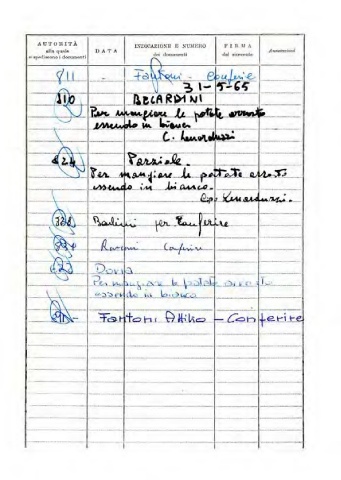 AUTORITÀ
alla quale
si spediscono i documenti
DATA
INDICAZIONE E NUMERO
dei documenti
FIRMA
del ricevente
Annotazioni
811 Fantoni - Conferire
31-5-65
810 BECARDINI
Per mangiare le patate arrosto
essendo in bianco
C. Lenarduzzi
824 Parziale.
Per mangiare le patate arrosto
essendo in bianco.
Lenarduzzi.
Badini per Conferire
Conferire
Doria
Per mangiare le patate arrosto
essendo in bianco
Fantoni Attilio - Conferire